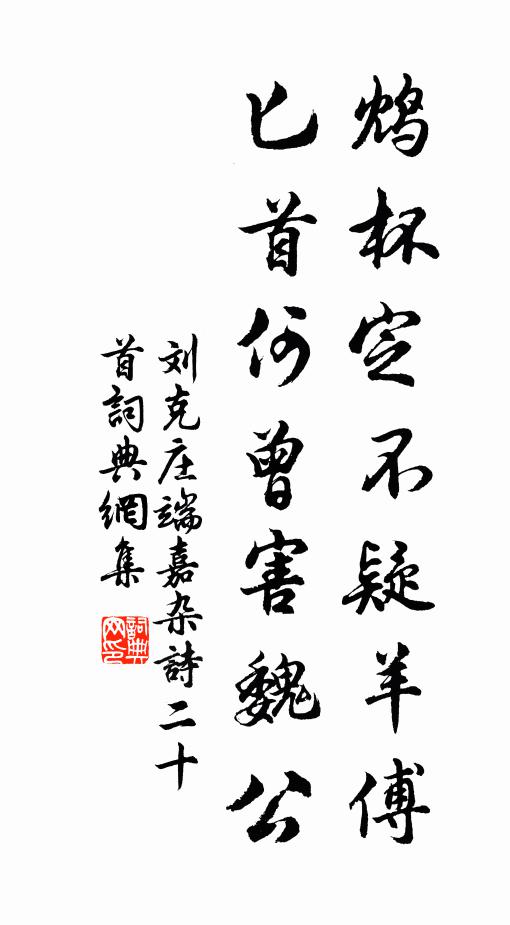 鸩杯定不疑羊傅
匕首何曾害魏公
刘克庄端嘉杂詩二十
首詞典網集
詞典
网印